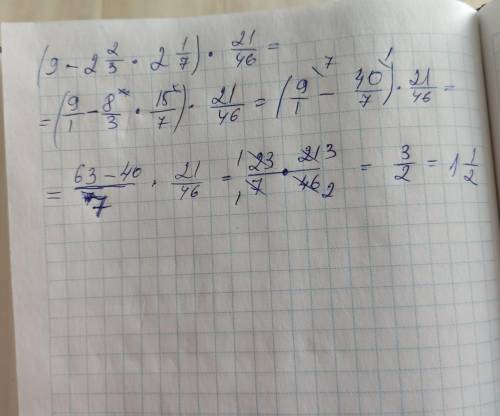 (9 - 2 2/3 · 2 1/7) · 21/46 =
= (9/1 - 8/3 · 15/7) · 21/46 = (9/1 \7 - 40/7 \1) · 21/46 =
= 63-40/7 · 21/46 = 1 23/7 1 · 21 3/46 2 = 3/2 = 1 1/2